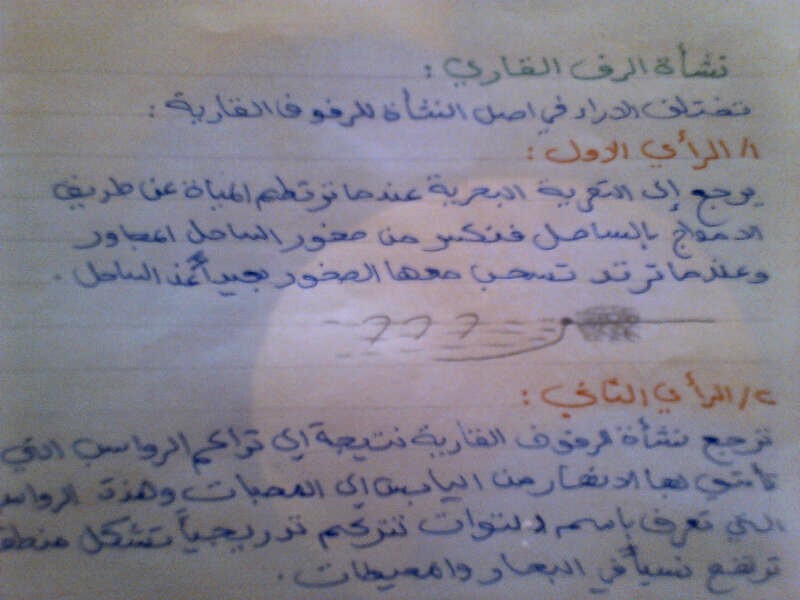 نشأة الرف القاري :
تختلف الاراء في اصل النشأة للرفوف القارية :
١/ الرأي الاول :
يرجع إلى التعرية البحرية عندما ترتطم المياة عن طريق
الامواج بالساحل فتكسر من صخور الساحل المجاور
وعندما ترتد تسحب معها الصخور بعيداً عن الساحل .
٢/ الرأي الثاني :
ترجع نشأة الرفوف القارية نتيجة إلى تراكم الرواسب التي
تأتي بها الانهار من اليابس إلى المصبات وهذة الرواس
التي تعرف باسم دلتوات تتركم تدريجياً تشكل منطق
ترتفع نسبياً في البحار والمحيطات .